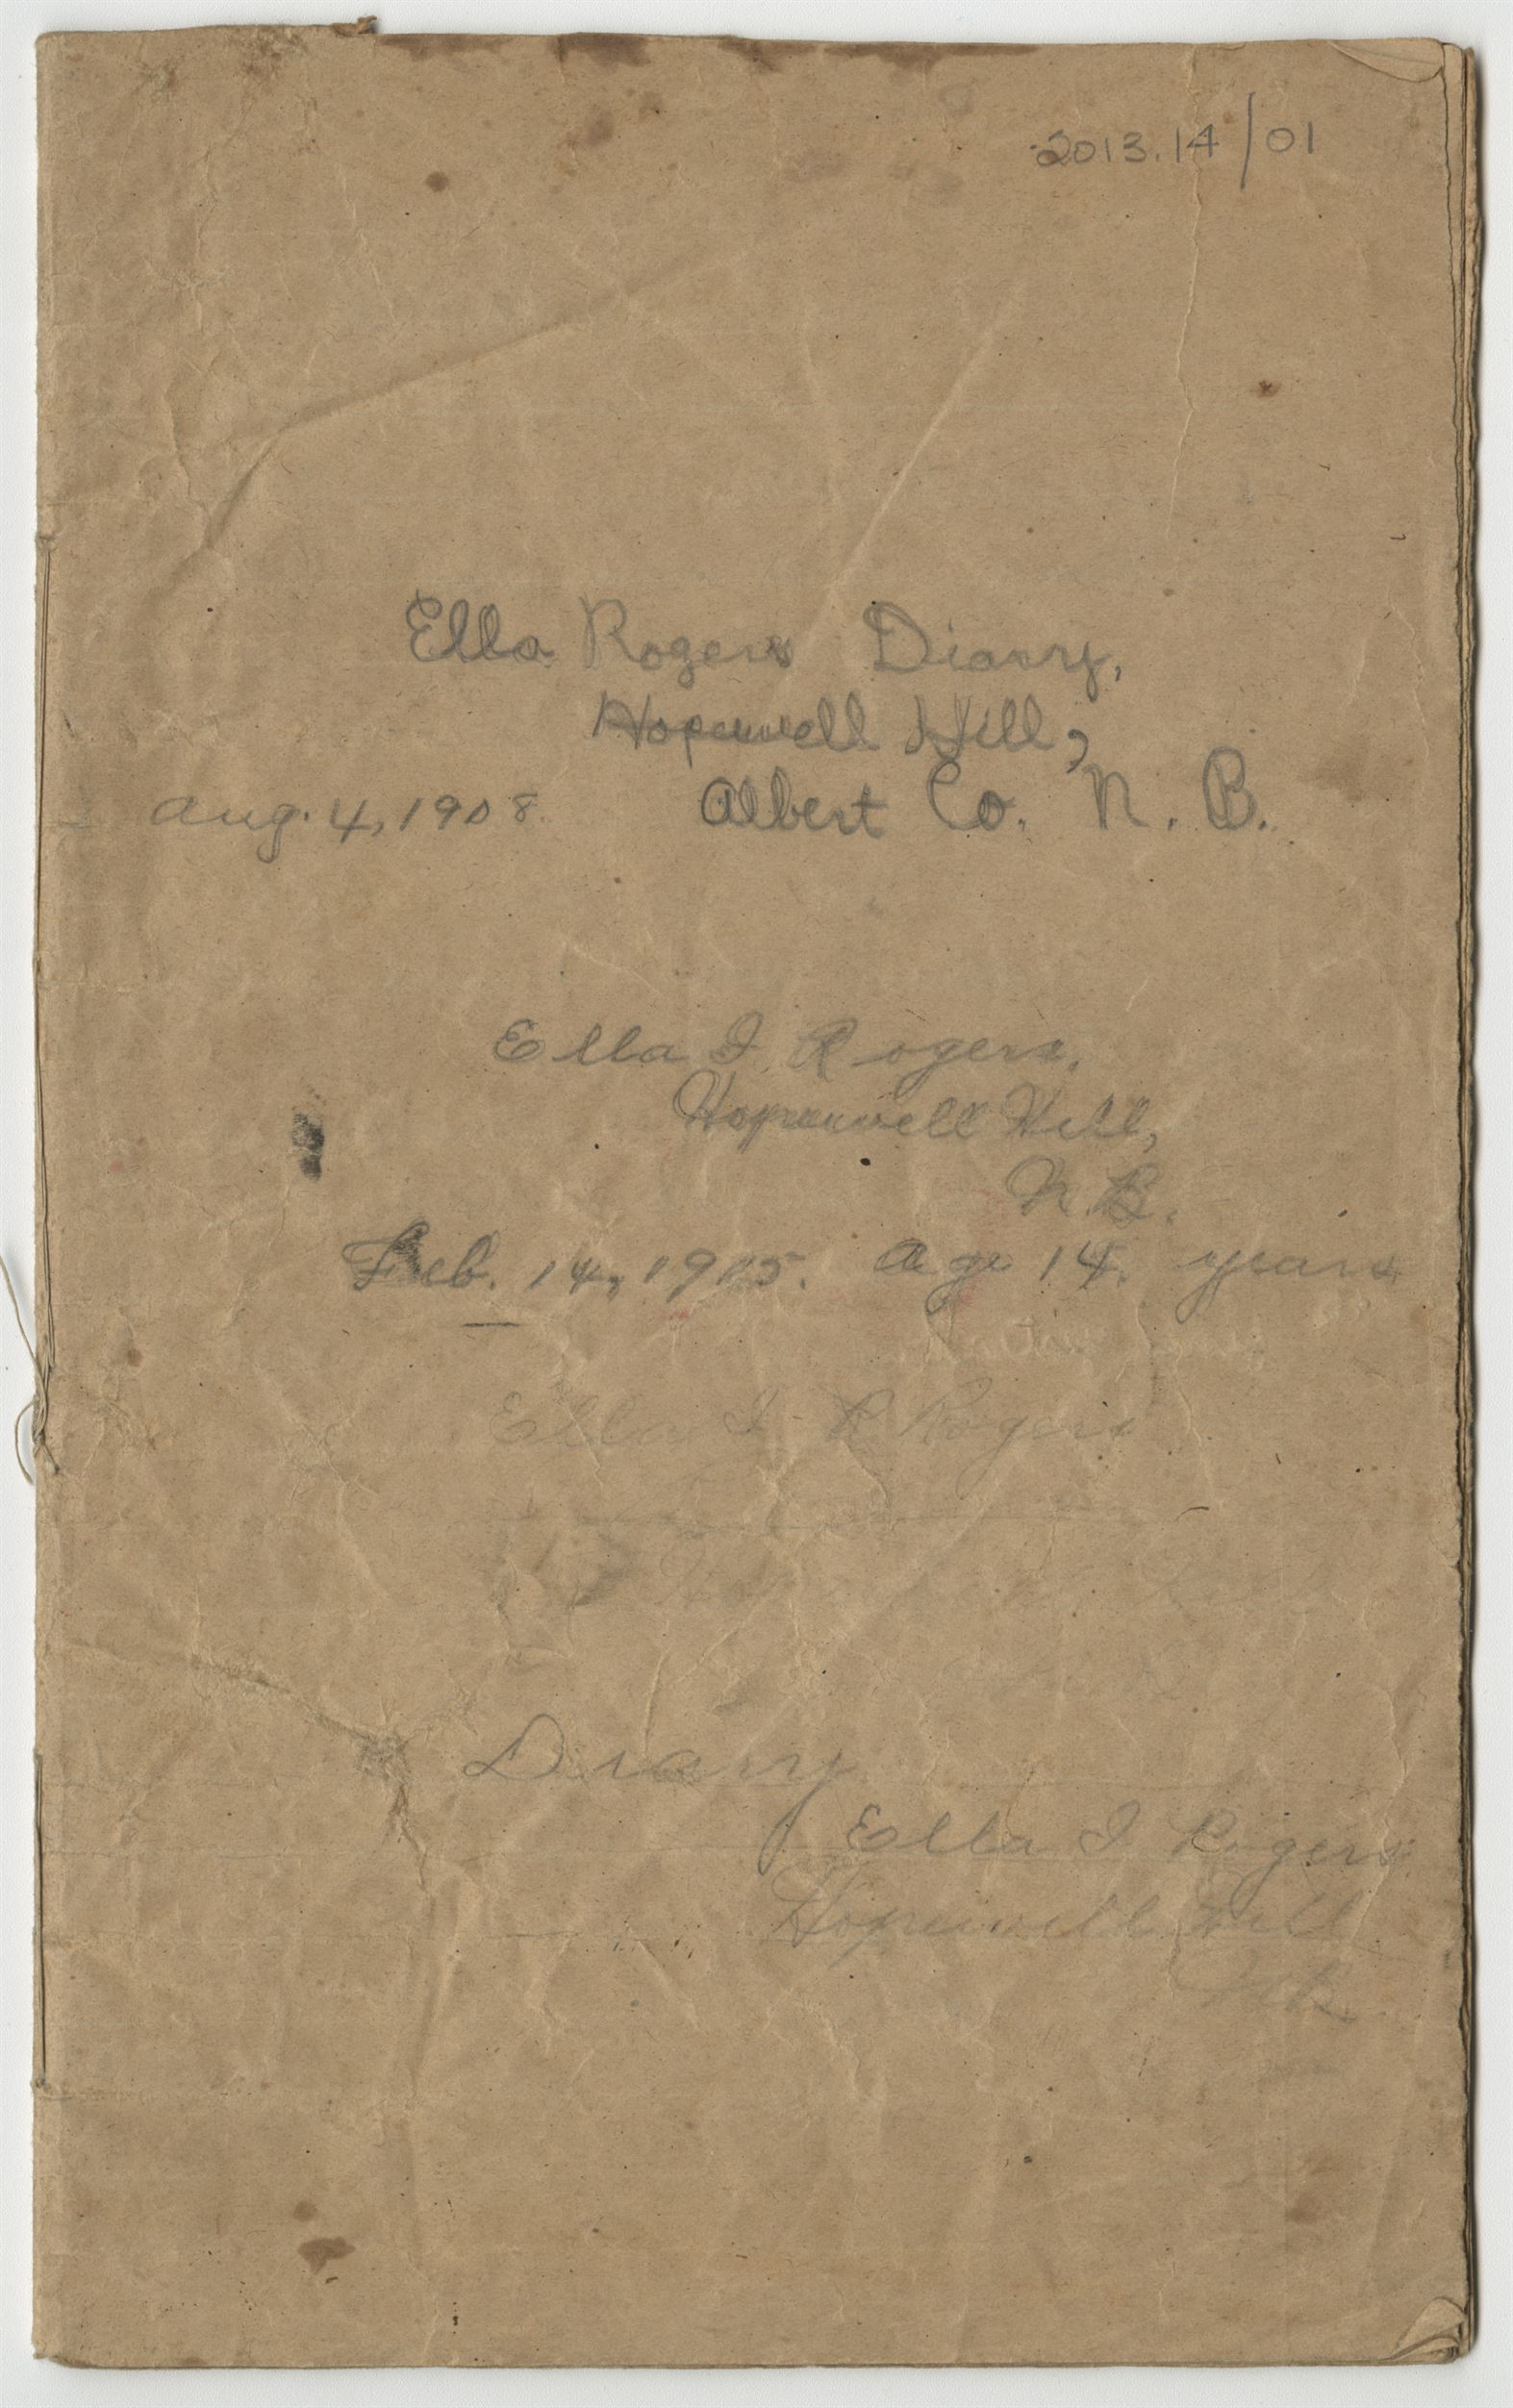 2013.14/01
Ella Rogers Diary,
Hopewell Hill,
Aug. 4, 1908 Albert Co. N. B.
Ella I. Rogers.
Hopewell Hill,
N. B.
Feb. 14, 1905. Age 14 years
Ella I R Rogers
Diary
Ella I Rogers
Hopewell Hill
N.B.